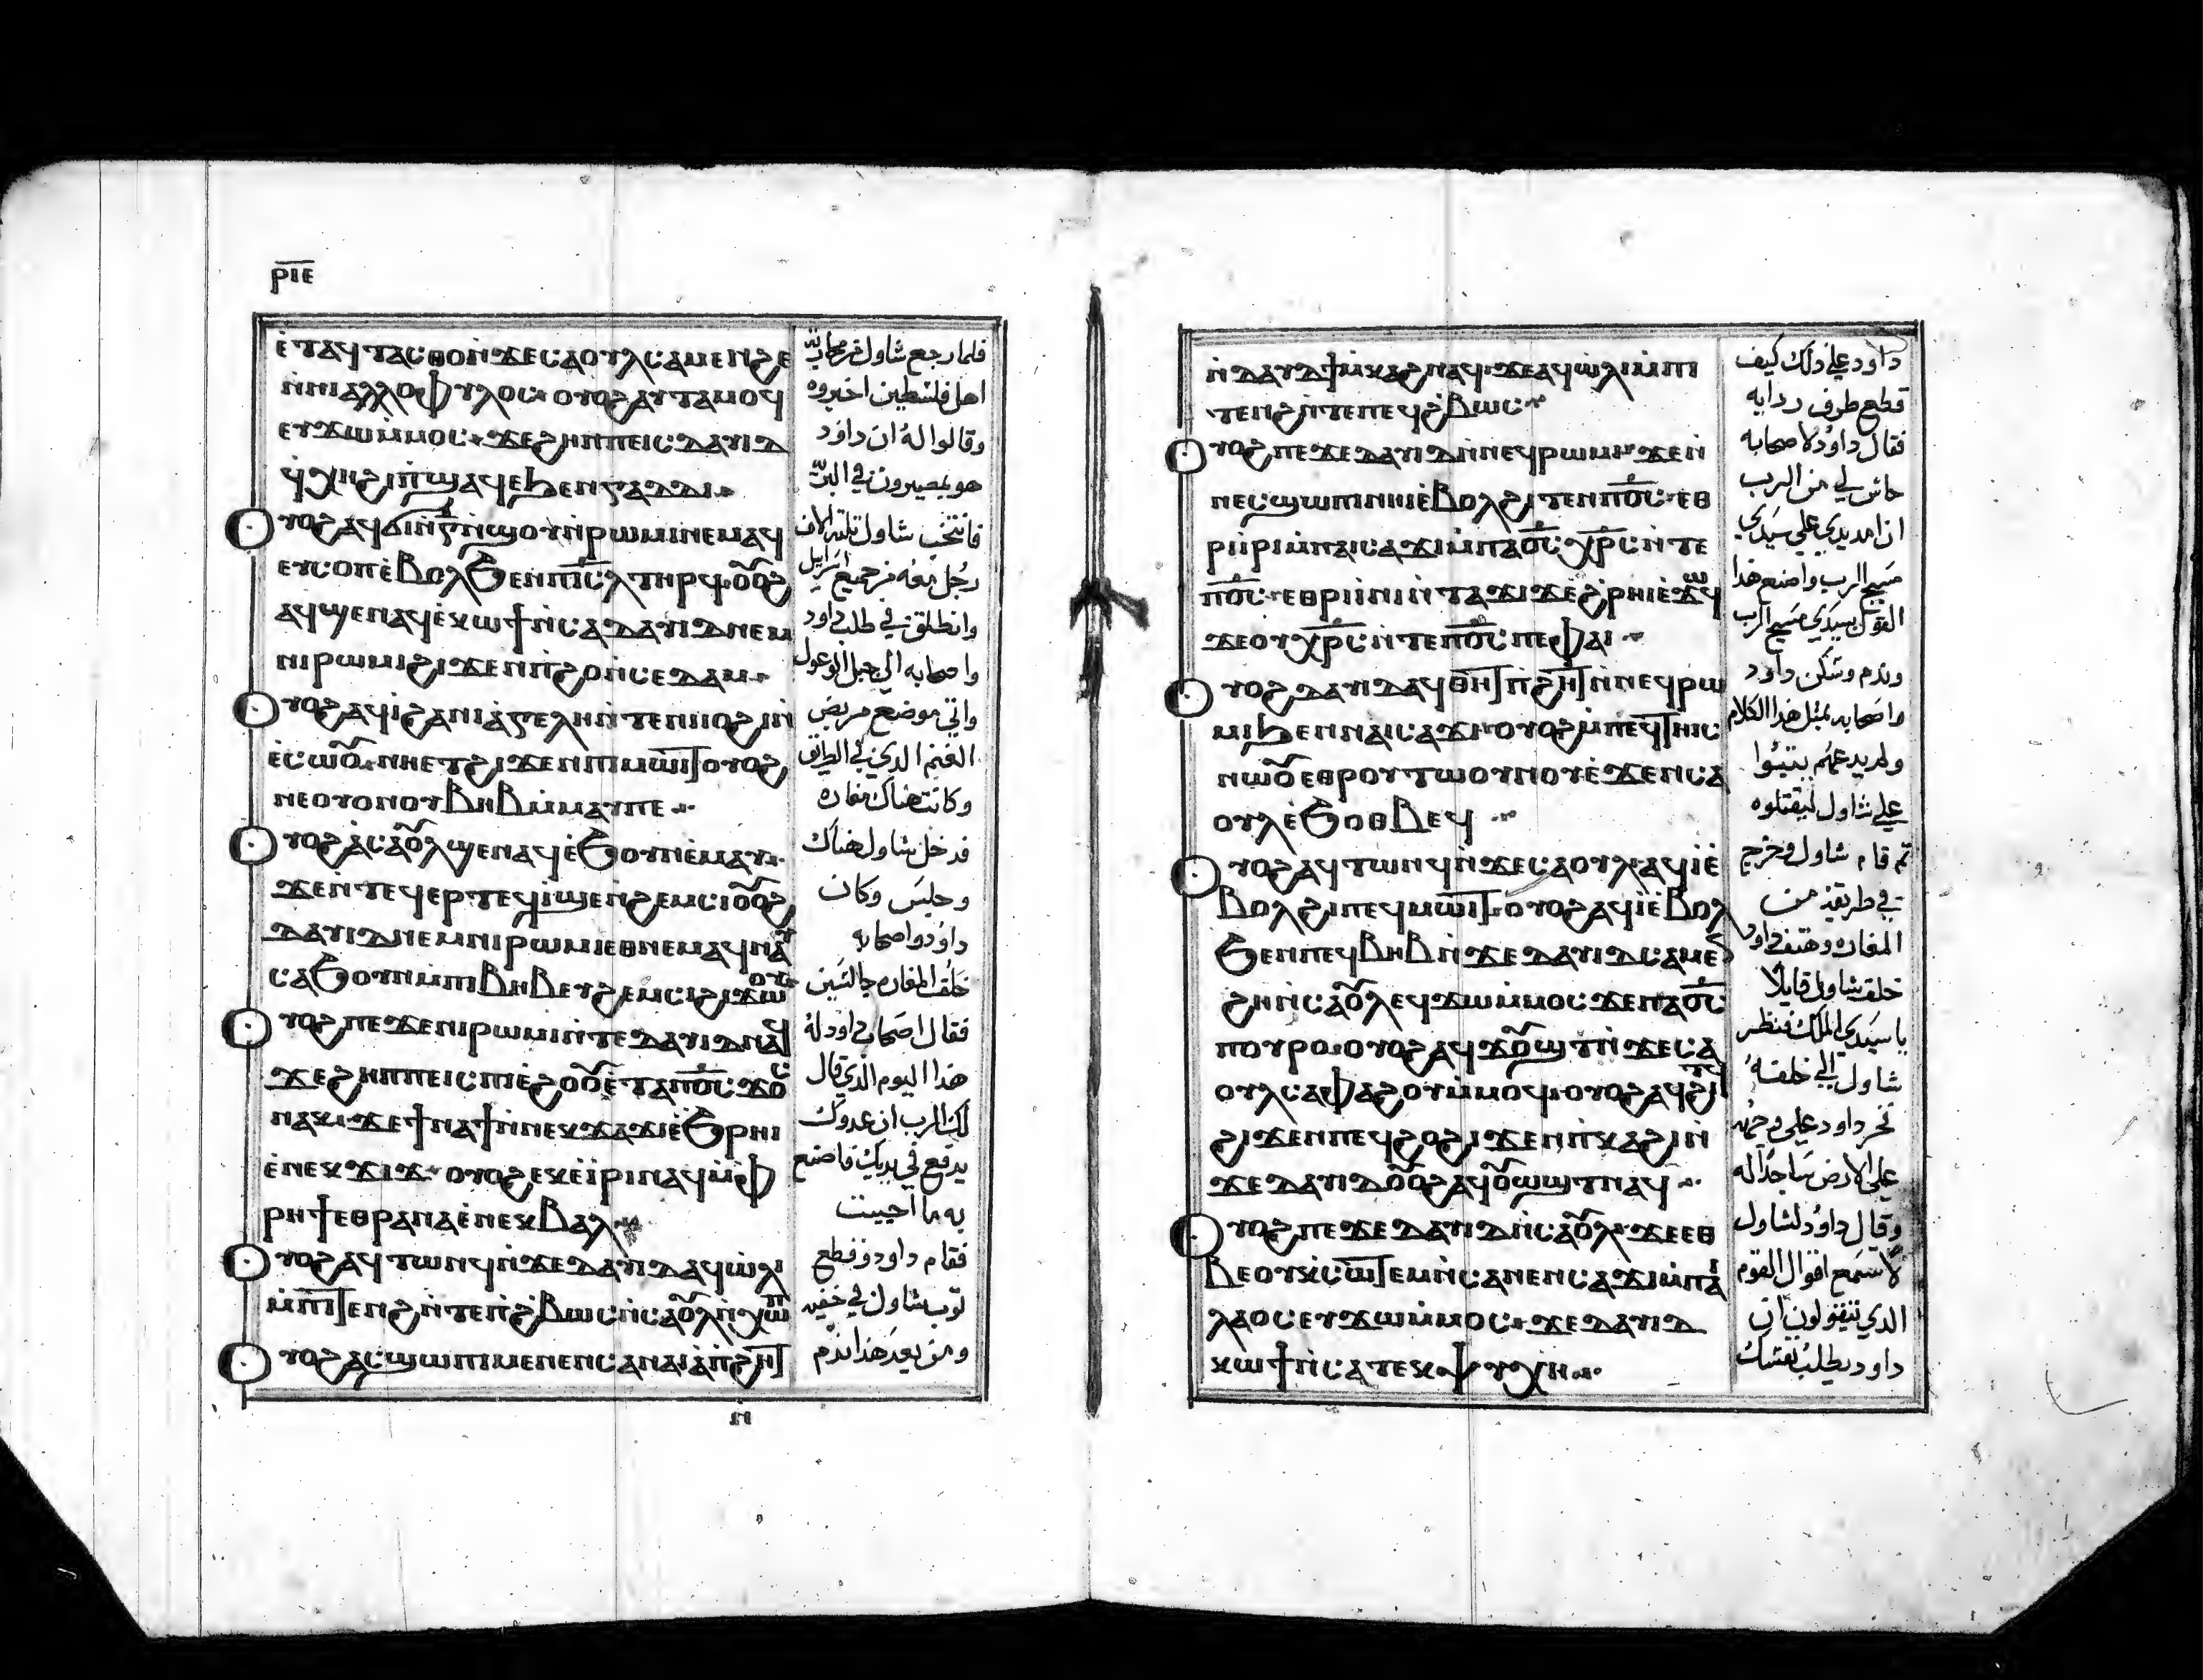 ⲣⲓⲉ
ⲉ̀ⲧⲁϥⲧⲁⲥⲑⲟ ⲛ̀ϫⲉ ⲥⲁⲟⲩⲗ ⲥⲁⲙⲉⲛϩⲉ
ⲛ̀ⲛⲓⲁⲗⲗⲟⲫⲩⲗⲟⲥ ⲟⲩⲟϩ ⲁⲩⲧⲁⲙⲟϥ
ⲉⲩϫⲱ ⲙ̀ⲙⲟⲥ ϫⲉ ϩⲏⲡⲡⲉ ⲓⲥ ⲇⲁⲩⲓⲇ
ⲟⲩⲟϩ ⲁϥϭⲓ ⲛ̀ⲅ̅ ⲛ̀ϣⲟ ⲩⲛ̀ⲣⲱⲙⲓ ⲛⲉⲙⲁϥ
ⲉⲩⲥⲟⲡ ⲉ̀ⲃⲟⲗϧⲉⲛ ⲡⲓⲥ̅ⲗ ⲧⲏⲣϥ ⲟⲩⲟϩ
ⲁϥϣⲉⲛⲁϥ ⲉ̀ⲕⲱϯ ⲛ̀ⲥⲁ ⲇⲁⲩⲓⲇ ⲛⲉⲙ
ⲛⲓⲣⲱⲙⲓ ϩⲓϫⲉⲛ ⲡ̀ϩⲟ ⲛ̀ⲥⲉⲇⲁⲙ
ⲟⲩⲟϩ ⲁϥⲓ̀ ϩⲁ ⲛⲓⲁ̀ⲅⲉⲗⲏ ⲛ̀ⲧⲉ ⲛⲓⲟϩⲓ ⲛ̀
ⲉ̀ⲥⲱⲟⲩ ⲛⲏⲉⲧϩⲓϫⲉⲛ ⲡⲓⲙⲱⲓⲧ ⲟⲩⲟϩ
ⲛⲉ ⲟⲩⲟⲛ ⲟⲩⲃⲏⲃ ⲙ̀ⲙⲁⲩⲡⲉ
ⲟⲩⲟϩ ⲁ̀ ⲥⲁⲟⲩⲗ ϣⲉⲛⲁϥ ⲉ̀ϧⲟⲩⲛ ⲉ̀ⲙⲁⲩ
ϫⲉ ⲛ̀ⲧⲉϥⲉⲣ ⲧⲉϥⲓ̀ϣⲉⲛϩⲉⲙⲥⲓ ⲟⲩⲟϩ
ⲇⲁⲩⲓⲇ ⲛⲉⲙ ⲛⲓⲣⲱⲙⲓ ⲉⲑⲛⲉⲙⲁϥ ⲛⲁⲩ
ⲥⲁϧⲟⲩⲛ ⲙ̀ⲡⲓⲃⲏⲃ ⲉⲩϩⲉⲙⲥⲓ ϩⲓϫⲱⲟⲩ
ⲟⲩⲟϩ ⲡⲉϫⲉ ⲛⲓⲣⲱⲙⲓ ⲛ̀ⲧⲉ ⲇⲁⲩⲓⲇ ⲛⲁϥ
ϫⲉ ϩⲏⲡⲡⲉ ⲓⲥ ⲡⲓⲉ̀ϩⲟⲟⲩ ⲉ̀ⲧⲁ ⲡⲟ̅ⲥ̅ ϫⲟⲥ
ⲛⲁⲕ ϫⲉ ϯⲛⲁϯ ⲛ̀ⲛⲉⲕϫⲁϫⲓ ⲉ̀ϧⲣⲏⲓ
ⲉ̀ⲛⲉⲕϫⲓϫ ⲟⲩⲟϩ ⲉⲕⲉ̀ⲓⲣⲓ ⲛⲁϥ ⲙ̀ⲫ
ⲣⲏϯ ⲉⲑⲣⲁⲛⲁ ⲉ̀ⲛⲉⲕⲃⲁⲗ
ⲟⲩⲟϩ ⲁϥⲧⲱⲛϥ ⲛ̀ϫⲉ ⲇⲁⲩⲓⲇ ⲁϥⲱ̀ⲗⲓ
ⲙ̀ⲡⲓⲧⲉⲛϩ ⲛ̀ⲧⲉ ⲡ̀ϩⲃⲱⲥ ⲛ̀ⲥⲁⲟⲩⲗ ⲛ̀ⲭⲱⲡ
ⲟⲩⲟϩ ⲁⲥϣⲱⲡⲓ ⲙⲉⲛⲉⲛⲥⲁ ⲛⲁⲓ ⲁ̀ ⲡ̀ϩⲏⲧ
فلما رجع شاول من محاربة
اهل فلسطين اخبروه
وقالوا له ان داود
فانتخب شاول ثلثة الاف
رجل معه من جميع اسراييل
وانطلق في طلب داود
واصحابه الي جبل الوعول
واتي موضع مربض
الغنم الذي في الطريق
وكانت هناك مغاره
فدخل شاول هناك
وجلس وكان
داود واصحابه
خلف المغاره جالسين
فقال اصحاب داود له
هذا اليوم الذي قال
لك الرب ان عدوك
يدفع في يديك فاصنع
به ما احببت
فقام داود وقطع
توب شاول في خفيه
ومن بعد هذا ندم
ⲛ̀ⲇⲁⲩⲓⲇ ϯⲙ̀ⲕⲁϩ ⲛⲁϥ ϫⲉ ⲁϥⲱ̀ⲗⲓ ⲙ̀ⲡⲓ
ⲧⲉⲛϩ ⲛ̀ⲧⲉ ⲡⲉϥϩ̀ⲃⲱⲥ
ⲟⲩⲟϩ ⲡⲉϫⲉ ⲇⲁⲩⲓⲇ ⲛ̀ⲛⲉϥⲣⲱⲙⲓ ϫⲉ ⲛ̀
ⲛⲉⲥϣⲱⲡⲓ ⲛⲏⲓ ⲉ̀ⲃⲟⲗϩⲓⲧⲉⲛ ⲡⲟ̅ⲥ̅ ⲉⲑ
ⲣⲓⲓ̀ⲣⲓ ⲙ̀ⲡⲁⲓⲥⲁϫⲓ ⲙ̀ⲡⲁⲟ̅ⲥ̅ ⲭⲣ̅ⲥ ⲛ̀ⲧⲉ
ⲡⲟ̅ⲥ̅ ⲉⲑⲣⲓⲓ̀ⲛⲓ ⲛ̀ⲧⲁϫⲓϫ ⲉ̀ϩⲣⲏⲓ ⲉ̀ϫⲱϥ
ϫⲉ ⲟⲩⲭⲣ̅ⲥ ⲛ̀ⲧⲉ ⲡⲟ̅ⲥ̅ ⲡⲉ ⲫⲁⲓ
ⲟⲩⲟϩ ⲇⲁⲩⲓⲇ ⲁϥⲑⲏⲧ ⲡ̀ϩⲏⲧ ⲛ̀ⲛⲉϥⲣⲱ
ⲙⲓ ϧⲉⲛ ⲛⲁⲓⲥⲁϫⲓ ⲟⲩⲟϩ ⲙ̀ⲡⲉϥⲧⲏⲓⲥ
ⲛⲱⲟⲩ ⲉⲑⲣⲟⲩⲧⲱⲟⲩⲛⲟⲩ ⲉ̀ϫⲉⲛ ⲥⲁ
ⲟⲩⲗ ⲉ̀ϧⲟⲑⲃⲉϥ
ⲟⲩⲟϩ ⲁϥⲧⲱⲛϥ ⲛ̀ϫⲉ ⲥⲁⲟⲩⲗ ⲁϥⲓ̀ ⲉ̀
ⲃⲟⲗ ϩⲓ ⲡⲉϥⲙⲱⲓⲧ ⲟⲩⲟϩ ⲁϥⲓ̀ ⲉ̀ⲃⲟⲗ
ϧⲉⲛ ⲡⲉϥⲃⲏⲃ ⲛ̀ϫⲉ ⲇⲁⲩⲓⲇ ⲥⲁⲙⲉⲛ
ϩⲏ ⲛ̀ⲥⲁⲟⲩⲗ ⲉϥϫⲱ ⲙ̀ⲙⲟⲥ ϫⲉ ⲡⲁⲟ̅ⲥ̅
ⲡⲟⲩⲣⲟ ⲟⲩⲟϩ ⲁϥϫⲟⲩϣⲧ ⲛ̀ϫⲉ ⲥⲁ
ⲟⲩⲗ ⲥⲁⲫⲁϩⲟⲩ ⲙ̀ⲙⲟϥ ⲟⲩⲟϩ ⲁϥϩⲓⲧϥ
ϩⲓϫⲉⲛ ⲡⲉϥϩⲟ ϩⲓϫⲉⲛ ⲡ̀ⲕⲁϩⲓ ⲛ̀
ϫⲉ ⲇⲁⲩⲓⲇ ⲟⲩⲟϩ ⲁϥⲟⲩⲱϣⲧ ⲛⲁϥ
ⲟⲩⲟϩ ⲡⲉϫⲉ ⲇⲁⲩⲓⲇ ⲛ̀ⲥⲁⲟⲩⲗ ϫⲉ ⲉⲑ
ⲃⲉⲟⲩ ⲕⲥⲱⲧⲉⲙ ⲛ̀ⲥⲁ ⲛⲉⲛⲥⲁϫⲓ ⲙ̀ⲡⲁⲓ
ⲗⲁⲟⲥ ⲉⲩϫⲱ ⲙ̀ⲙⲟⲥ ϫⲉ ⲇⲁⲩⲓⲇ
ⲕⲱϯ ⲛ̀ⲥⲁ ⲧⲉⲕⲯⲩⲭⲏ
داود علي ذلك كيف
قطع طرف ردايه
فقال داود لاصحابه
حاش لي من الرب
ان امد يدي علي سيدي
مسيح الرب واصنع هذا
القول بسيدي مسيح الرب
وندم وسكن داود
واصحابه بمثل هذا الكلام
علي شاول ليقتلوه
ثم قام شاول وخرج
في طريقه من
المغاره وهتف داود
خلف شاول قايلا
يا سيدي الملك فنظر
شاول الي خلفه
فخر داود علي وجهه
علي الارض ساجدا له
وقال داود لشاول
لا تسمع اقوال القوم
الذي تتقولون ان
داود يطلب نفسك